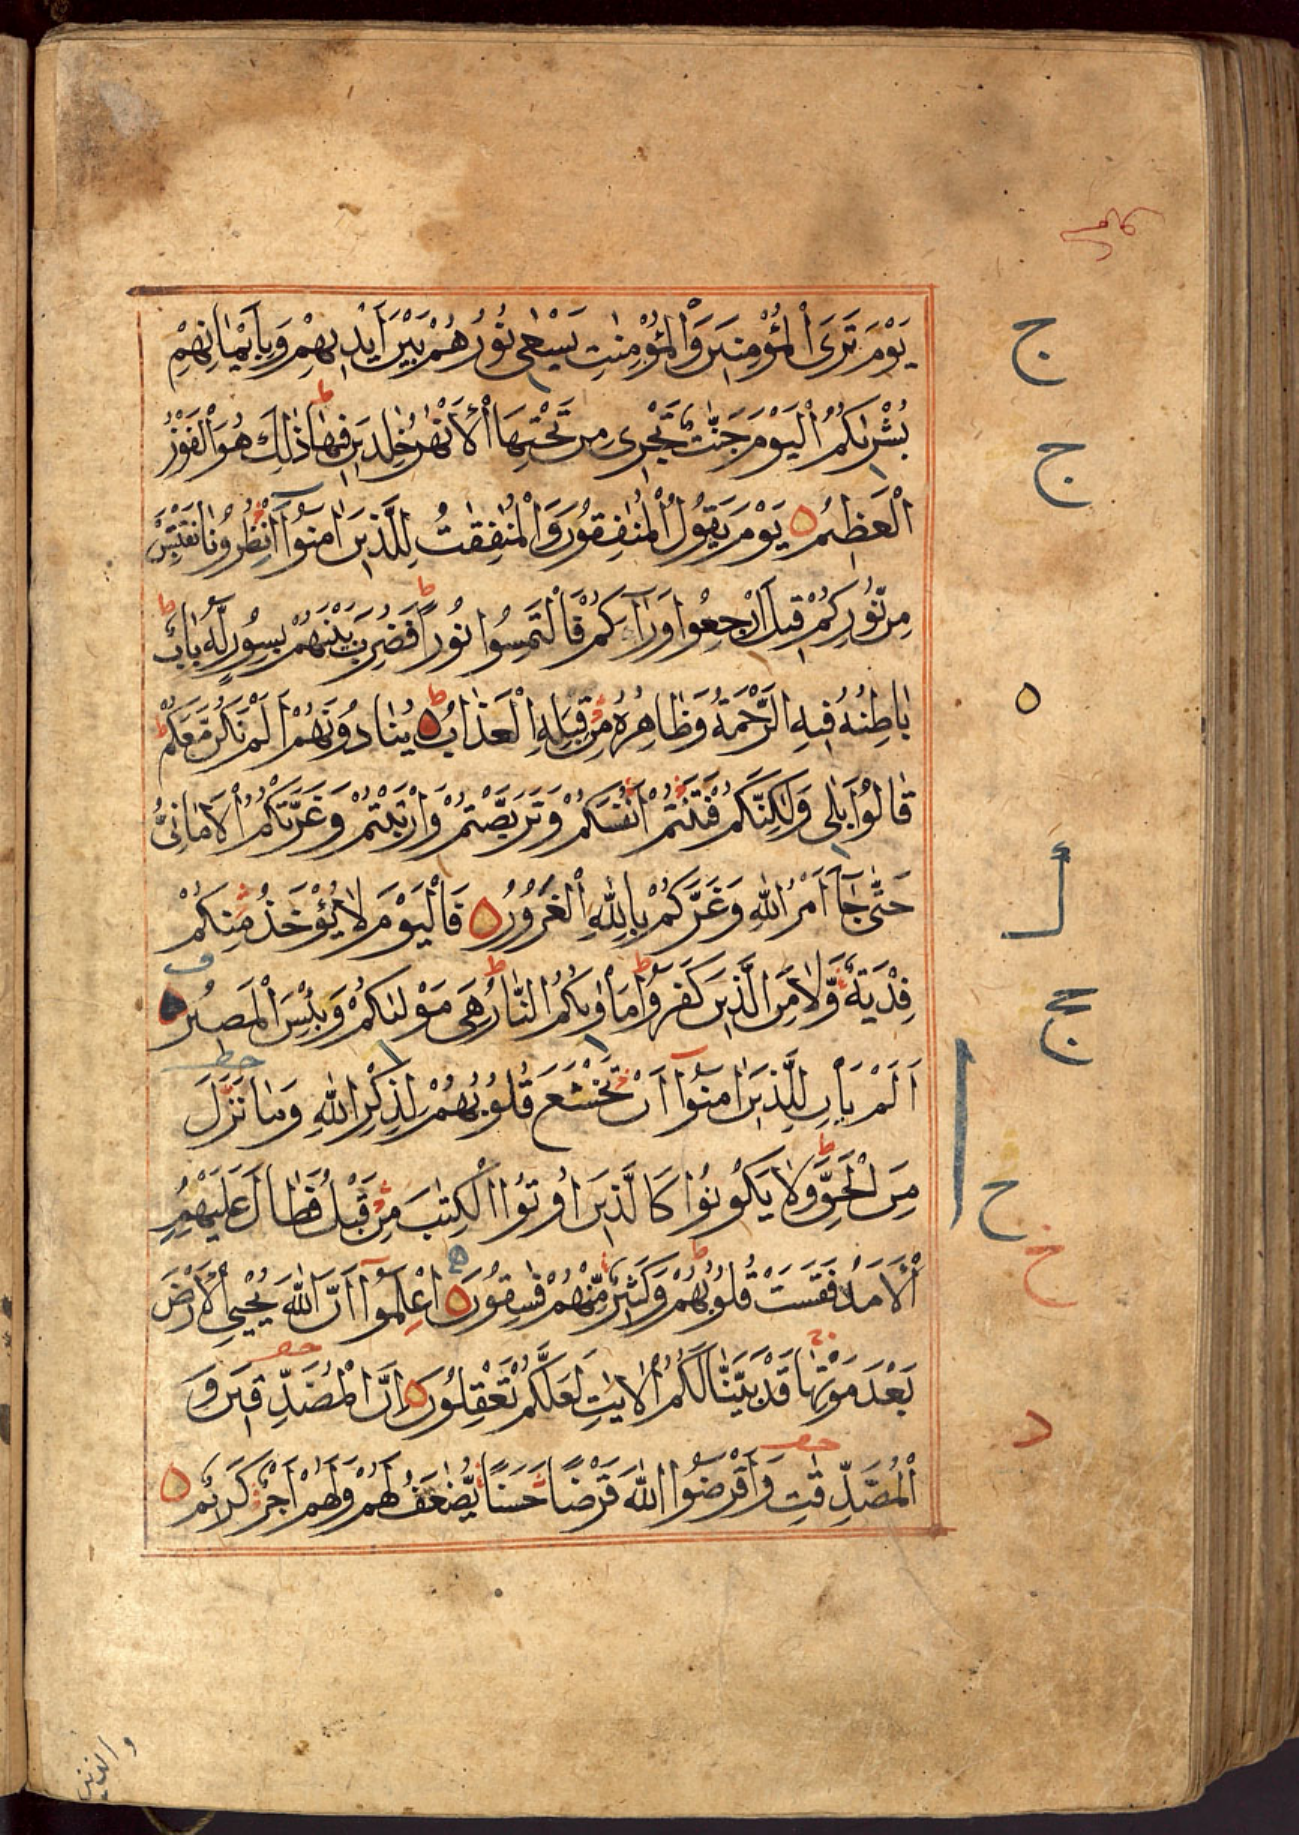 يَوْمَ تَرَى الْمُؤْمِنِينَ وَالْمُؤْمِنٰتِ يَسْعٰى نُورُهُمْ بَيْنَ اَيْدِيهِمْ وَبِاَيْمَانِهِمْ
بُشْرٰىكُمُ الْيَوْمَ جَنّٰتٌ تَجْرِى مِنْ تَحْتِهَا الْاَنْهٰرُ خٰلِدِينَ فِيهَا ط ذٰلِكَ هُوَ الْفَوْزُ
الْعَظِيمُ ۝ يَوْمَ يَقُولُ الْمُنٰفِقُونَ وَالْمُنٰفِقٰتُ لِلَّذِينَ اٰمَنُوا انْظُرُونَا نَقْتَبِسْ
مِنْ نُّورِكُمْ قِيلَ ارْجِعُوا وَرَاۤءَكُمْ فَالْتَمِسُوا نُورًا ط فَضُرِبَ بَيْنَهُمْ بِسُورٍ لَّهُ بَابٌ ط
بَاطِنُهُ فِيهِ الرَّحْمَةُ وَظَاهِرُهُ مِنْ قِبَلِهِ الْعَذَابُ ط ۝ يُنَادُونَهُمْ اَلَمْ نَكُنْ مَّعَكُمْ ط
قَالُوا بَلٰى وَلٰكِنَّكُمْ فَتَنْتُمْ اَنْفُسَكُمْ وَتَرَبَّصْتُمْ وَارْتَبْتُمْ وَغَرَّتْكُمُ الْاَمَانِىُّ
حَتّٰى جَاۤءَ اَمْرُ اللّٰهِ وَغَرَّكُمْ بِاللّٰهِ الْغَرُورُ ۝ فَالْيَوْمَ لَا يُؤْخَذُ مِنْكُمْ
فِدْيَةٌ وَّلَا مِنَ الَّذِينَ كَفَرُوا ط مَاْوٰىكُمُ النَّارُ ط هِىَ مَوْلٰىكُمْ وَبِئْسَ الْمَصِيرُ ۝
اَلَمْ يَاْنِ لِلَّذِينَ اٰمَنُوۤا اَنْ تَخْشَعَ قُلُوبُهُمْ لِذِكْرِ اللّٰهِ وَمَا نَزَلَ
مِنَ الْحَقِّ ط وَلَا يَكُونُوا كَالَّذِينَ اُوتُوا الْكِتٰبَ مِنْ قَبْلُ فَطَالَ عَلَيْهِمُ
الْاَمَدُ فَقَسَتْ قُلُوبُهُمْ ط وَكَثِيرٌ مِّنْهُمْ فٰسِقُونَ ۝ اِعْلَمُوۤا اَنَّ اللّٰهَ يُحْيِى الْاَرْضَ
بَعْدَ مَوْتِهَا قَدْ بَيَّنَّا لَكُمُ الْاٰيٰتِ لَعَلَّكُمْ تَعْقِلُونَ ۝ اِنَّ الْمُصَّدِّقِينَ وَ
الْمُصَّدِّقٰتِ وَاَقْرَضُوا اللّٰهَ قَرْضًا حَسَنًا يُّضٰعَفُ لَهُمْ وَلَهُمْ اَجْرٌ كَرِيمٌ ۝
ج
ج
ج
ح
ح
د
والذين